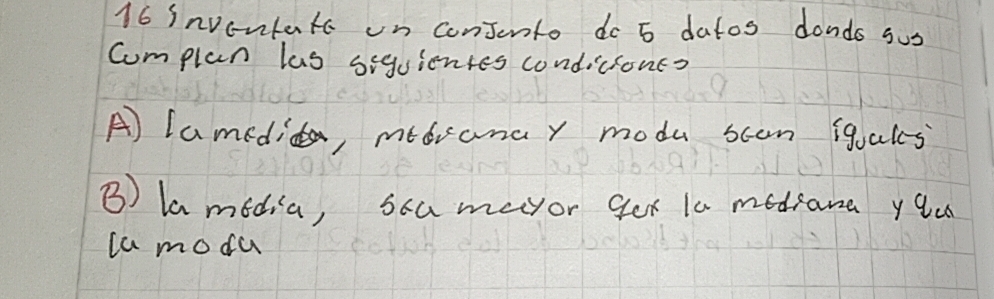 16 inventate un conjunto de 5 datos donde sus
Cumplan las siguientes condiciones
A) la media, mediana y moda sean iguales
B) la media, sea mayor que la mediana y que
la moda